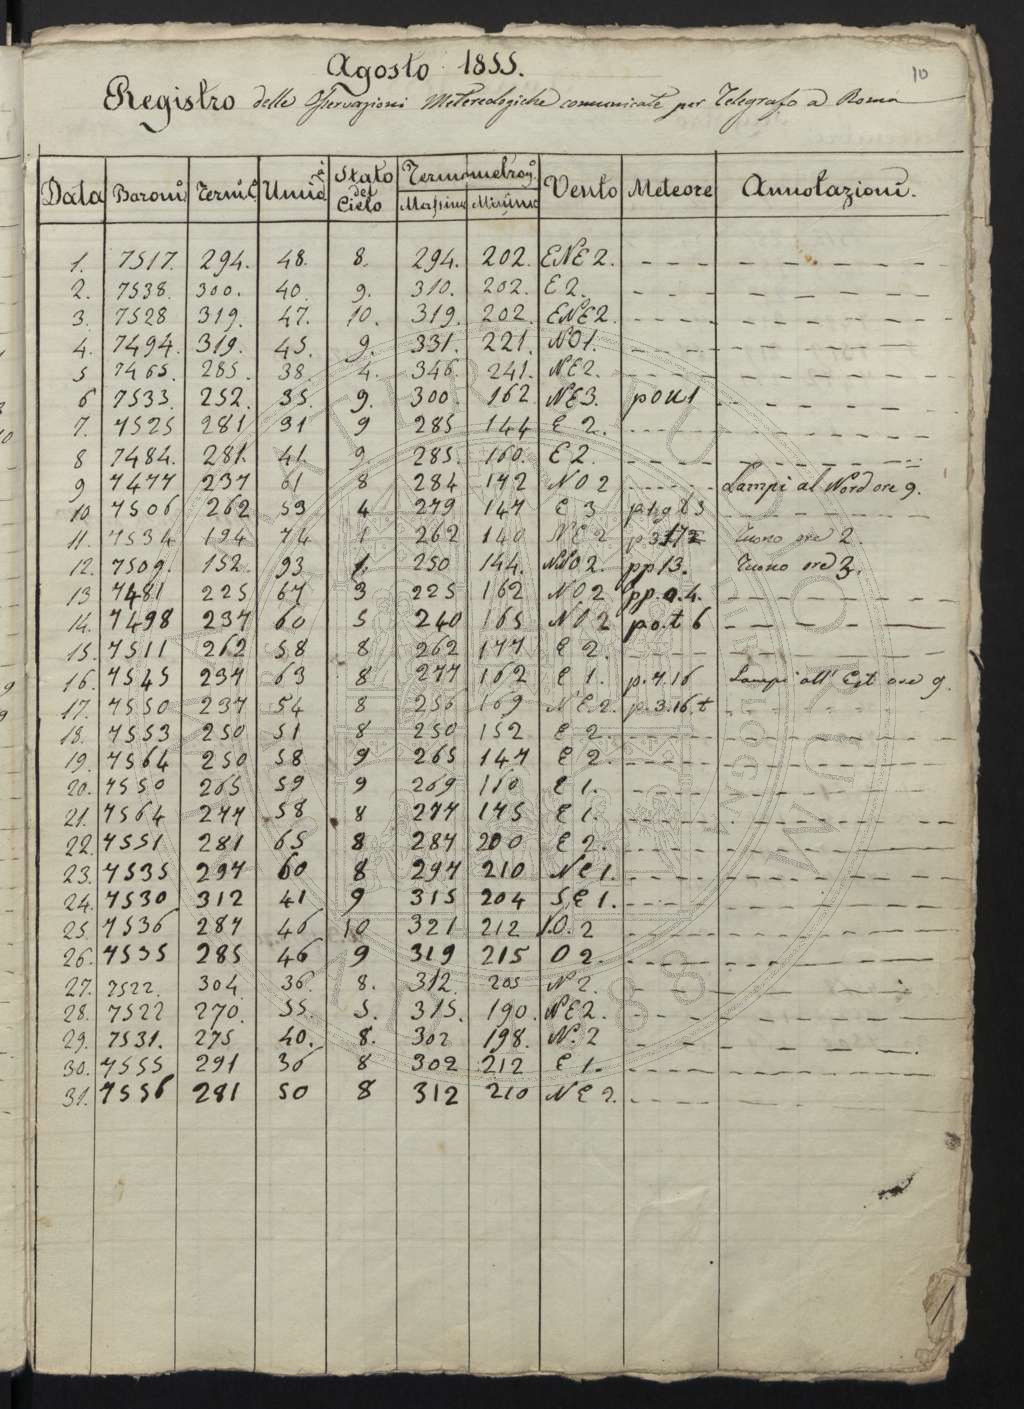 10
Agosto 1855.
Registro delle Osservazioni Metereologiche comunicate per Telegrafo a Roma
Data Barom Term Umid Stato del Cielo Termometrog. Massimo Minimo Vento Meteore Annotazioni.
1. 7517. 294. 48. 8. 294. 202. ENE 2.
2. 7538. 300. 40. 9. 310. 202. E 2.
3. 7528 319. 47. 10. 319. 202. ENE2.
4. 7494. 319. 45. 9. 331. 221. NO1.
5 7465. 285. 38. 4. 346. 241. NE2.
6 7533. 252. 35. 9. 300. 162. NE3. p011
7. 7525 281 31 9 285 144 E 2.
8 7484. 281. 41. 9. 285. 160. E 2.
9 7477 237 61 8 284 172 NO 2 Lampi al Nord ore 9.
10 7506 262 59 4 279 147 E 3
11. 7534 194 74 1 262 140 NE 2 Tuono ore 2.
12. 7509. 152. 93 1. 250 144. NNO2. pp13. Tuono ore 3.
13 7481 225 67 3 225 162 NO 2 pp.0.4.
14. 7498 237 60 5 240 165 NO 2 po.t 6
15. 7511 262 58 8 262 177 E 2.
16. 7545 237 63 8 277 162 E 1. p.7.16 Lampi all' Est ore 9.
17. 7550 237 54 8 256 169 NE.2. p.3.16.t
18. 7553 250 51 8 250 152 E 2.
19. 7564 250 58 9 265 147 E 2.
20. 7550 265 59 9 269 160 E 1.
21. 7564 277 58 8 277 175 E 1.
22. 7551 281 65 8 287 200 E 2.
23. 7535 297 60 8 297 210 NE 1.
24. 7530 312 41 9 315 204 SE 1.
25 7536 287 46 10 321 212 2
26. 7535 285 46 9 319 215 O 2.
27. 7522. 304. 36. 8. 312. 205 N 2.
28. 7522 270. 55. 5. 315. 190. NE2.
29. 7531. 275 40. 8. 302 198. N. 2
30. 7555 291 36 8 302 212 E 1.
31. 7556 281 50 8 312 210 NE 2.